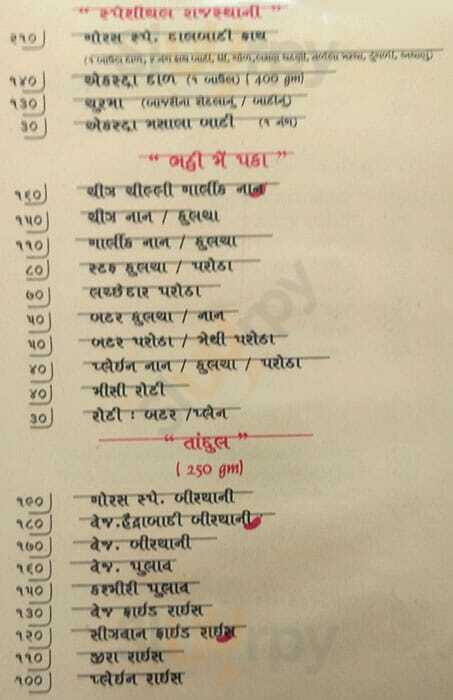 “ સ્પેશીયલ રાજસ્થાની ”
૨૧૦ ગોરસ સ્પે. દાલબાટી થાળ
(૧ બાઉલ દાળ, ૪ નંગ બાટી, ઘી, ગોળ, લસણ ચટણી,
૧૪૦ એકસ્ટ્રા દાળ (૧ બાઉલ) ( 400 gm)
૧૩૦ ચુરમા (બાજરીના રોટલાનુ / બાટીનુ)
૩૦ એકસ્ટ્રા મસાલા બાટી (૧ નંગ)
“ ભઠ્ઠી મેં પકા ”
૧૬૦ ચીઝ ચીલ્લી ગાર્લીક નાન
૧૫૦ ચીઝ નાન / કુલચા
૧૧૦ ગાર્લીક નાન / કુલચા
૮૦ સ્ટફ કુલચા / પરોઠા
૭૦ લચ્છેદાર પરોઠા
૫૦ બટર કુલચા / નાન
૫૦ બટર પરોઠા / મેથી પરોઠા
૪૦ પ્લેઈન નાન / કુલચા / પરોઠા
૪૦ મીસી રોટી
૩૦ રોટી : બટર /પ્લેન
“ તાંદુલ ”
( 250 gm)
૧૯૦ ગોરસ સ્પે. બીરયાની
૧૮૦ વેજ.હૈદ્રાબાદી બીરયાની
૧૭૦ વેજ. બીરયાની
૧૬૦ વેજ. પુલાવ
૧૫૦ કશ્મીરી પુલાવ
૧૩૦ વેજ ફ્રાઈડ રાઈસ
૧૨૦ સીઝવાન ફ્રાઈડ રાઈસ
૧૧૦ જીરા રાઈસ
૧૦૦ પ્લેઈન રાઈસ